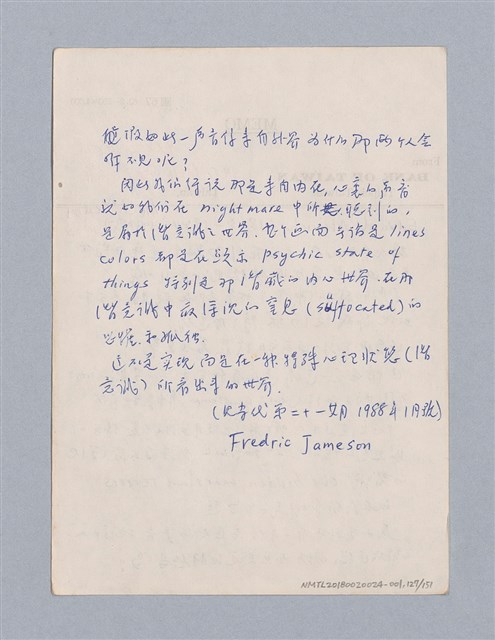 假如此一声音係来自外界 为什么那两个人会
听不見呢？
因此我们得说那是来自内在, 心裏的声音
说如我们在 nightmare 中所 聽到的,
是屬於潛意識之世界. 整个画面 手法是 lines
colors 都是在顯示 psychic state of
things 特别是那潛藏的内心世界. 在那
潛意識中 被 的窒息 (suffocated) 的
恐懼. 和孤独.
这不是实现 而是在一种特殊心理状態 (潛
意識) 所看出来的世界.
(当代 第二十一 月 1988年1月號)
Fredric Jameson
NMTL20180020024-001,127/151